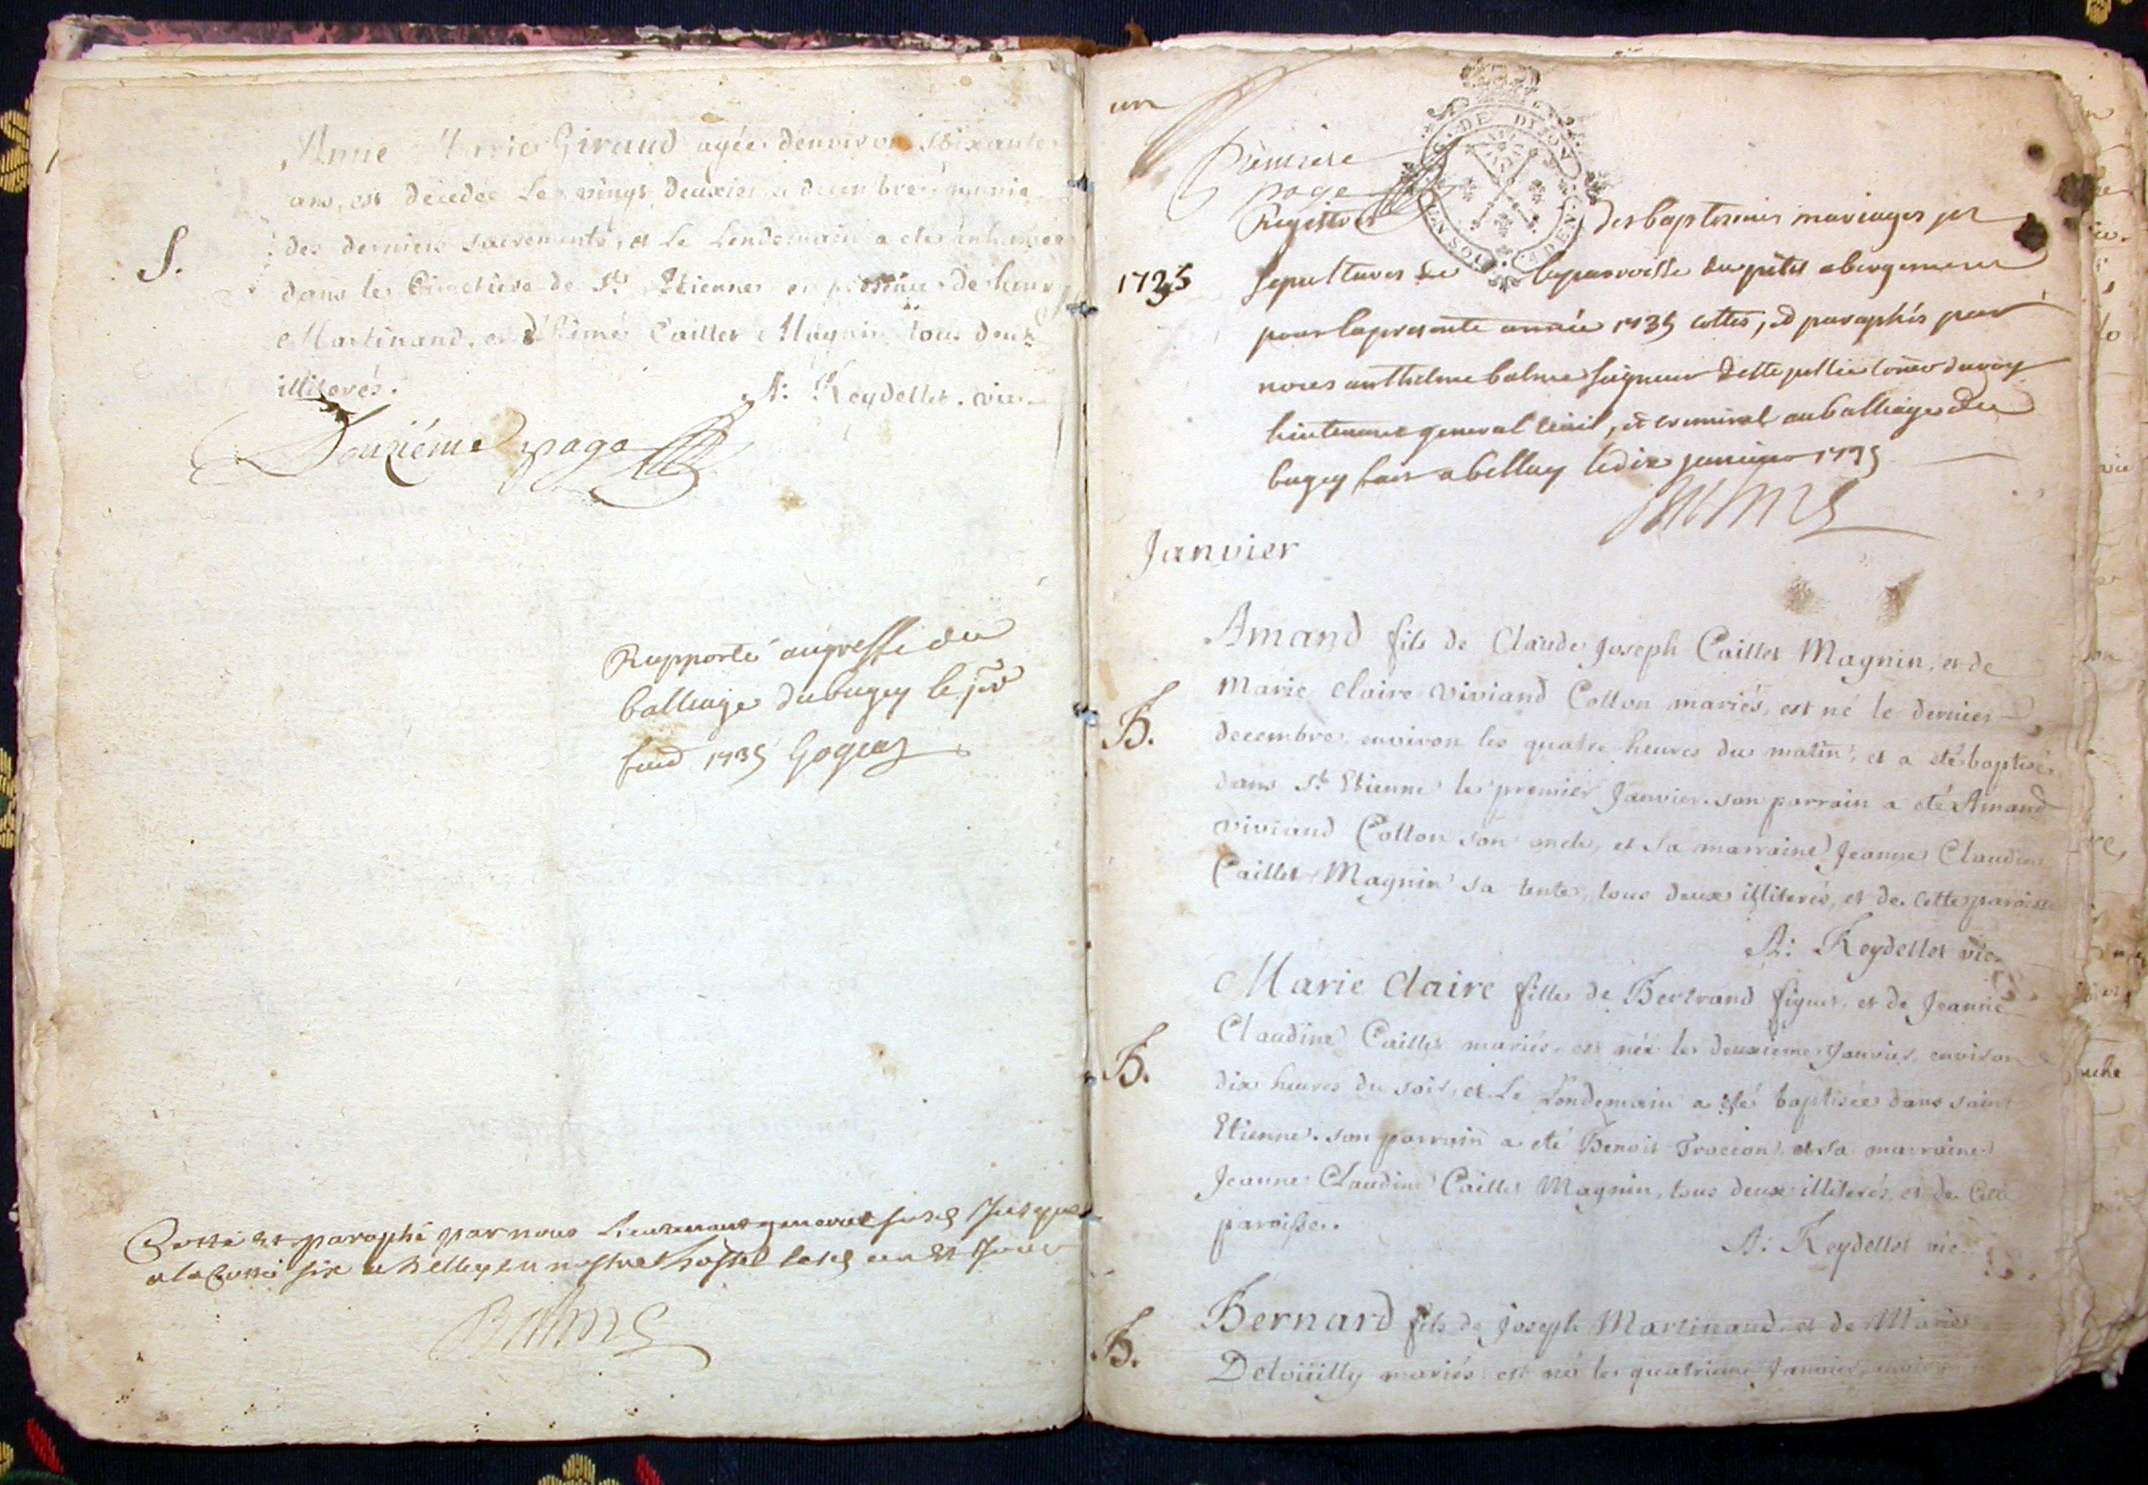 Anne Marie Giraud agée denviron soixante
ans, est décedée Le vingt deuxieme decembre munie
des derniers sacrements, et Le Lendemain a eté enhumée
S.
dans le Cimetiere de St Etienne en presence de
Martinand, et d'Aimé Caillet Magnin tous deux
illiterés.
A: Reydellet. vic.
Douziéme page
Rapporté au greffe du
balliage du bugey le
1735
Cotté et paraphé par nous Lieutenant general jusques
a la Cotte six a Belley en nostre hostel
Balme
un
Premiere
page
DE DIJON
Registres des baptemes mariages et
1735
sepultures de la parroisse du petit abergement
pour la presente année 1735 cottés, et paraphés par
nous anthelme balme seigneur
lieutenant general civil, et criminel au balliage du
bugey fait a belley le dix janvier 1735
Balme
Janvier
Amand fils de Claude Joseph Caillet Magnin, et de
Marie Claire Viviand Cotton mariés, est né le dernier
B.
decembre, environ les quatre heures du matin, et a eté baptisé
dans St Etienne le premier Janvier. son parrain a eté Amand
Viviand Cotton son oncle, et sa marraine Jeanne Claudine
Caillet Magnin sa tente, tous deux illiterés, et de cette paroisse
A: Reydellet vic.
Marie Claire fille de Bertrand figuet, et de Jeanne
Claudine Caillet mariés, est née le deuxieme Janvier, environ
B.
dix heures du soir, et Le Lendemain a eté baptisée dans saint
Etienne. son parrain a eté Benoit Trocion, et sa marraine
Jeanne Claudine Caillet Magnin, tous deux illiterés, et de Cette
paroisse.
A: Reydellet vic.
Bernard fils de Joseph Martinand, et de Marie
B.
Delouilly mariés est né le quatrieme Janvier, environ